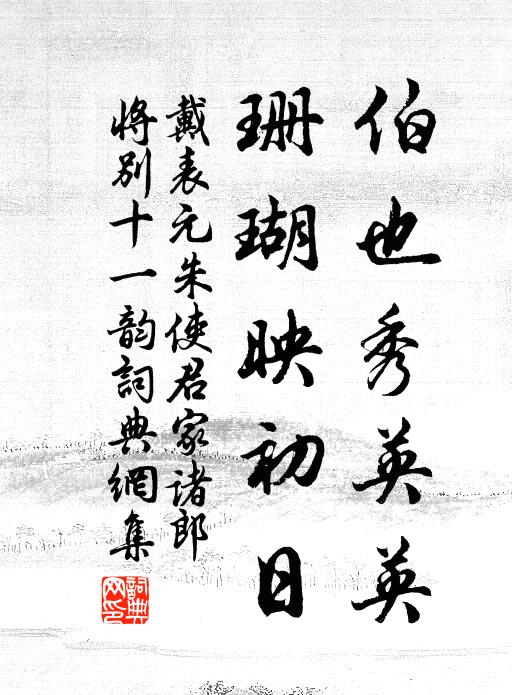 伯也秀英英
珊瑚映初日
戴表元朱使君家诸郎
将别十一韵词典网集
词典网印